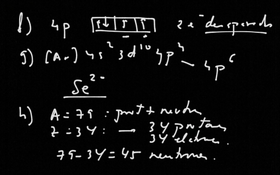 f) 4p ↑↓ ↑ ↑ 2 e⁻ desapareados
g) [Ar] 4s² 3d¹⁰ 4p⁴ — 4p⁶
Se²⁻
h) A = 79 : prot + neutro
Z = 34 : → 34 protones
34 electrones
79 - 34 = 45 neutrones.